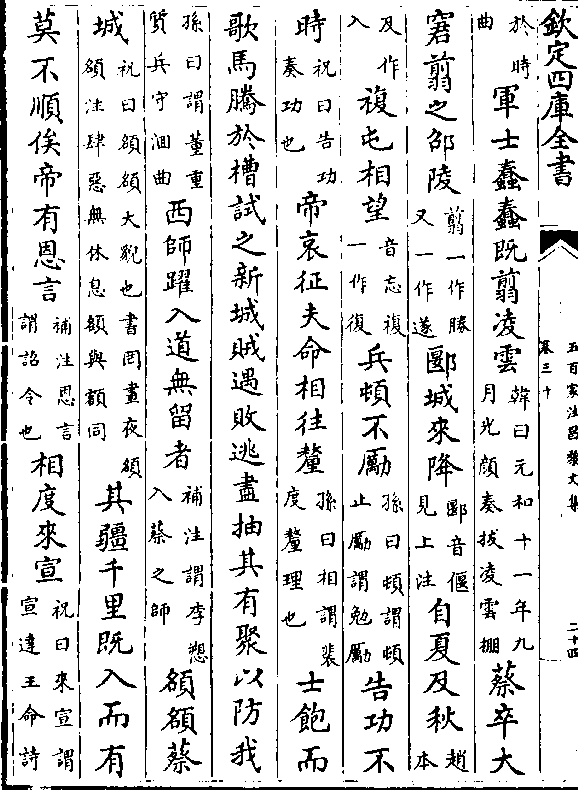 欽定四庫全書
五百家注昌黎文集
卷三十
二十四
於時
曲
軍士蠢蠢既翦凌雲
韓曰元和十一年九
月光顔奏拔凌雲柵
蔡卒大
窘翦之邵陵
翦一作勝
又一作遂
郾城來降
郾音偃
見上注
自夏及秋
趙
本
及作
入
複屯相望
音忘複
一作復
兵頓不勵
孫曰頓謂頓
止勵謂勉勵
告功不
時
祝曰告功
奏功也
帝哀征夫命相往釐
孫曰相謂裴
度釐理也
士飽而
歌馬騰於槽試之新城賊遇敗逃盡抽其有聚以防我
孫曰謂董重
質兵守洄曲
西師躍入道無留者
補注謂李愬
入蔡之師
頟頟蔡
城
祝曰頟頟大貌也書罔晝夜頟
頟注肆惡無休息頟與額同
其疆千里既入而有
莫不順俟帝有恩言
補注恩言
謂詔令也
相度來宣
祝曰來宣謂
宣達王命詩